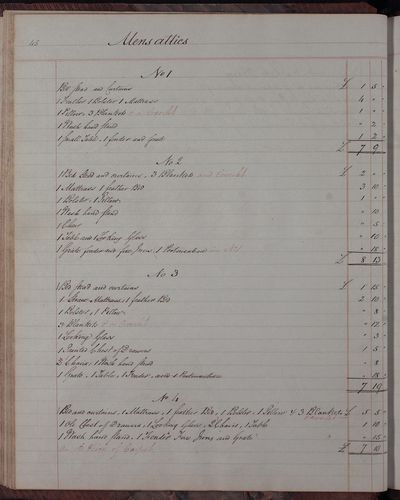 45
Mens attics
No 1
Bed stead and curtains £ 1 5 "
1 Feather 1 Bolster 1 Mattrass 4 " "
1 Pillow, 3 Blankets 1 " "
1 Wash hand stand " 2 "
1 Small Table, 1 fender and 1 2 "
£ 7 9 "
No 2
1 Bed Stead and curtains, 3 Blankets and Coverlid £ 2 " "
1 Mattrass 1 feather Bed 3 10 "
1 Bolster, 1 Pillow 1 " "
1 Wash hand stand " 10 "
1 Chair " 5 "
1 Table and 1 Looking Glass " 10 "
1 Grate fender and fire Irons, 1 " 18 "
£ 8 13 "
No 3
1 Bed stead and curtains £ 1 15 "
1 Straw Mattrass, 1 feather Bed 2 10 "
1 Bolster, 1 Pillow " 8 "
3 Blankets " 12 "
1 Looking Glass " 3 "
1 Painted Chest of Drawers 1 5 "
2 Chairs, 1 Wash hand stand " 8 "
1 Grate, 1 Table, 1 Fender, and 1 " 18 "
7 19 "
No 4
Bed and curtains, 1 Mattrass, 1 feather Bed, 1 Bolster, 1 Pillow & 3 Blankets £ 5 5 "
1 Old Chest of Drawers, 1 Looking Glass, 2 Chairs, 1 Table 1 10 "
1 Wash hand stand, 1 Fender Fire Irons and Grate " 15 "
£ 7 10 "